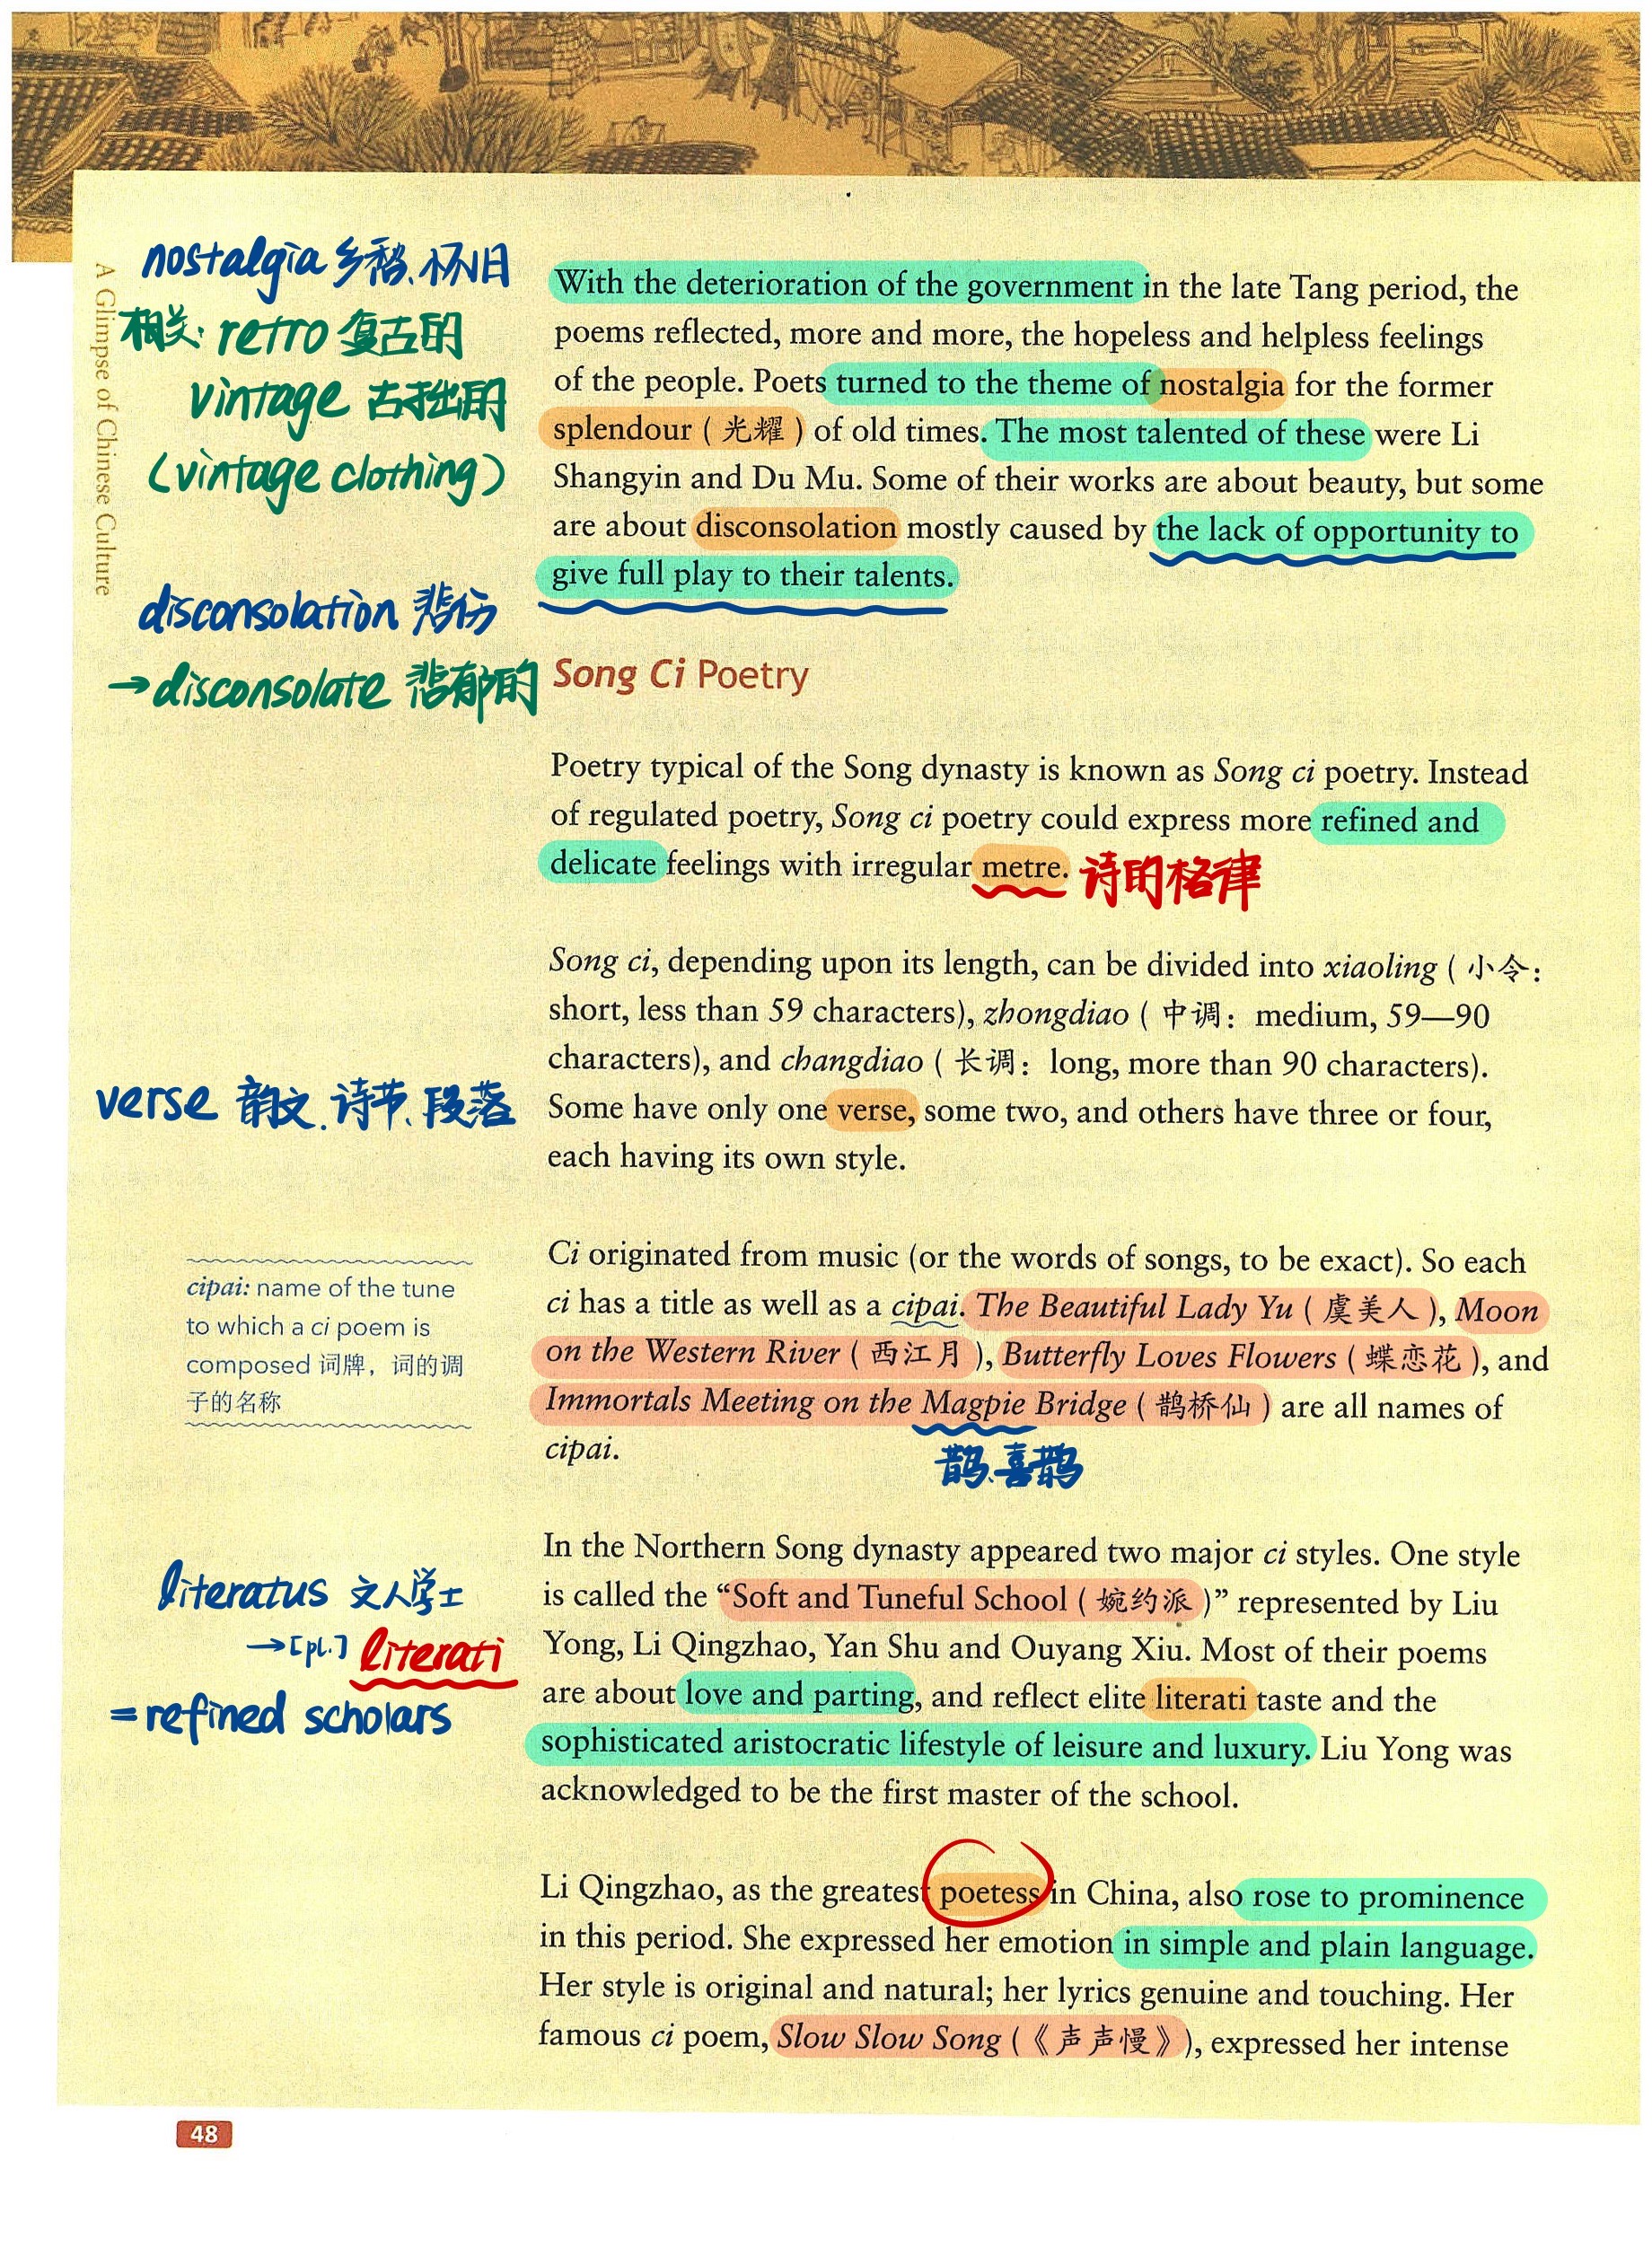 A Glimpse of Chinese Culture
nostalgia 乡愁、怀旧
相关: retro 复古的
vintage 古拙的
(vintage clothing)
disconsolation 悲伤
→disconsolate 悲郁的
With the deterioration of the government in the late Tang period, the
poems reflected, more and more, the hopeless and helpless feelings
of the people. Poets turned to the theme of nostalgia for the former
splendour ( 光耀 ) of old times. The most talented of these were Li
Shangyin and Du Mu. Some of their works are about beauty, but some
are about disconsolation mostly caused by the lack of opportunity to
give full play to their talents.
Song Ci Poetry
Poetry typical of the Song dynasty is known as Song ci poetry. Instead
of regulated poetry, Song ci poetry could express more refined and
delicate feelings with irregular metre. 诗的格律
Song ci, depending upon its length, can be divided into xiaoling ( 小令:
short, less than 59 characters), zhongdiao ( 中调: medium, 59—90
characters), and changdiao ( 长调: long, more than 90 characters).
Some have only one verse, some two, and others have three or four,
each having its own style.
verse 韵文、诗节、段落
cipai: name of the tune
to which a ci poem is
composed 词牌，词的调
子的名称
Ci originated from music (or the words of songs, to be exact). So each
ci has a title as well as a cipai. The Beautiful Lady Yu ( 虞美人 ), Moon
on the Western River ( 西江月 ), Butterfly Loves Flowers ( 蝶恋花 ), and
Immortals Meeting on the Magpie Bridge ( 鹊桥仙 ) are all names of
cipai.
鹊、喜鹊
literatus 文人学士
→[pl.] literati
= refined scholars
In the Northern Song dynasty appeared two major ci styles. One style
is called the “Soft and Tuneful School ( 婉约派 )” represented by Liu
Yong, Li Qingzhao, Yan Shu and Ouyang Xiu. Most of their poems
are about love and parting, and reflect elite literati taste and the
sophisticated aristocratic lifestyle of leisure and luxury. Liu Yong was
acknowledged to be the first master of the school.
Li Qingzhao, as the greatest poetess in China, also rose to prominence
in this period. She expressed her emotion in simple and plain language.
Her style is original and natural; her lyrics genuine and touching. Her
famous ci poem, Slow Slow Song (《声声慢》), expressed her intense
48